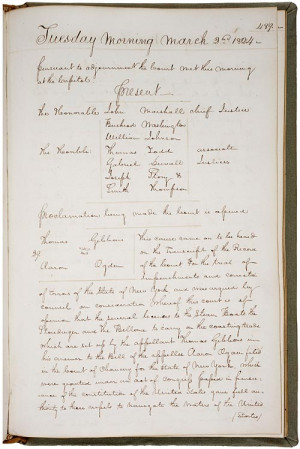 489.
Tuesday Morning March 2nd 1824.
Pursuant to adjournment the Court met this morning
at the Capitol.
Present
The Honourable John Marshall Chief Justice
Bushrod Washington
William Johnson
The Honble Thomas Todd associate
Gabriel Duvall Justices
Joseph Story &
Smith Thompson
Proclamation being made the Court is opened
Thomas Gibbons This cause came on to be heard
39 vs on the Transcript of the Record
Aaron Ogden of the Court for the trial of
Impeachments and correction
of Errors of the State of New York and was argued by
counsel on consideration whereof this court is of
opinion that the several licenses to the Steam Boats the
Stoudinger and the Bellona to carry on the coasting trade
which are set up by the appellant Thomas Gibbons in
his answer to the Bill of the appellee Aaron Ogden filed
in the Court of Chancery for the State of New York, which
were granted under an act of Congress passed in pursu-
ance of the constitution of the United States gave full au-
thority to those vessels to navigate the waters of the United